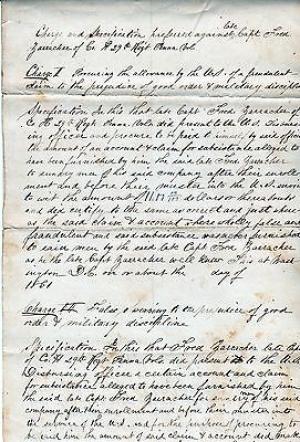 late
Charge and Specification preferred against Capt Fred
Zarracher of Co H 29th Regt Penna Vols
Charge I Procuring the allowance by the U.S. of a fraudulent
claim to the prejudice of good order & military discipline
Specification In this that late Capt Fred Zarracher of
Co H 29th Regt Penna Vols did present to the U.S. Disburs
ing officer and procure to be paid to himself by said officer
the amount of an account & claim for subsistence alleged to
have been furnished by him the said late Fred Zarracher
to sundry men of his said company after their enroll
ment and before their muster into the U.S. service
to wit the amount of dollars or thereabouts
and did certify to the same as correct and just whereas
the said claim & account where wholly false and
fraudulent and said subsistence was never furnished
to said men by the said late Capt Fred Zarracher
as he the late Capt Zarracher well knew This at Wash
ington D.C. on or about the day of
1861
Charge II False swearing to the prejudice of good
order & military discipline
Specification In this that Fred Zarracher late Capt
of Co H 29th Regt Penna Vols did present to the U.S.
Disbursing officer a certain account and claim
for subsistence alleged to have been furnished by him
the said late Capt Fred Zarracher for sundry men of his said
company after their enrollment and before their muster into
the service of the U.S. and for the purpose of procuring to
be paid him the amount of said claim & account